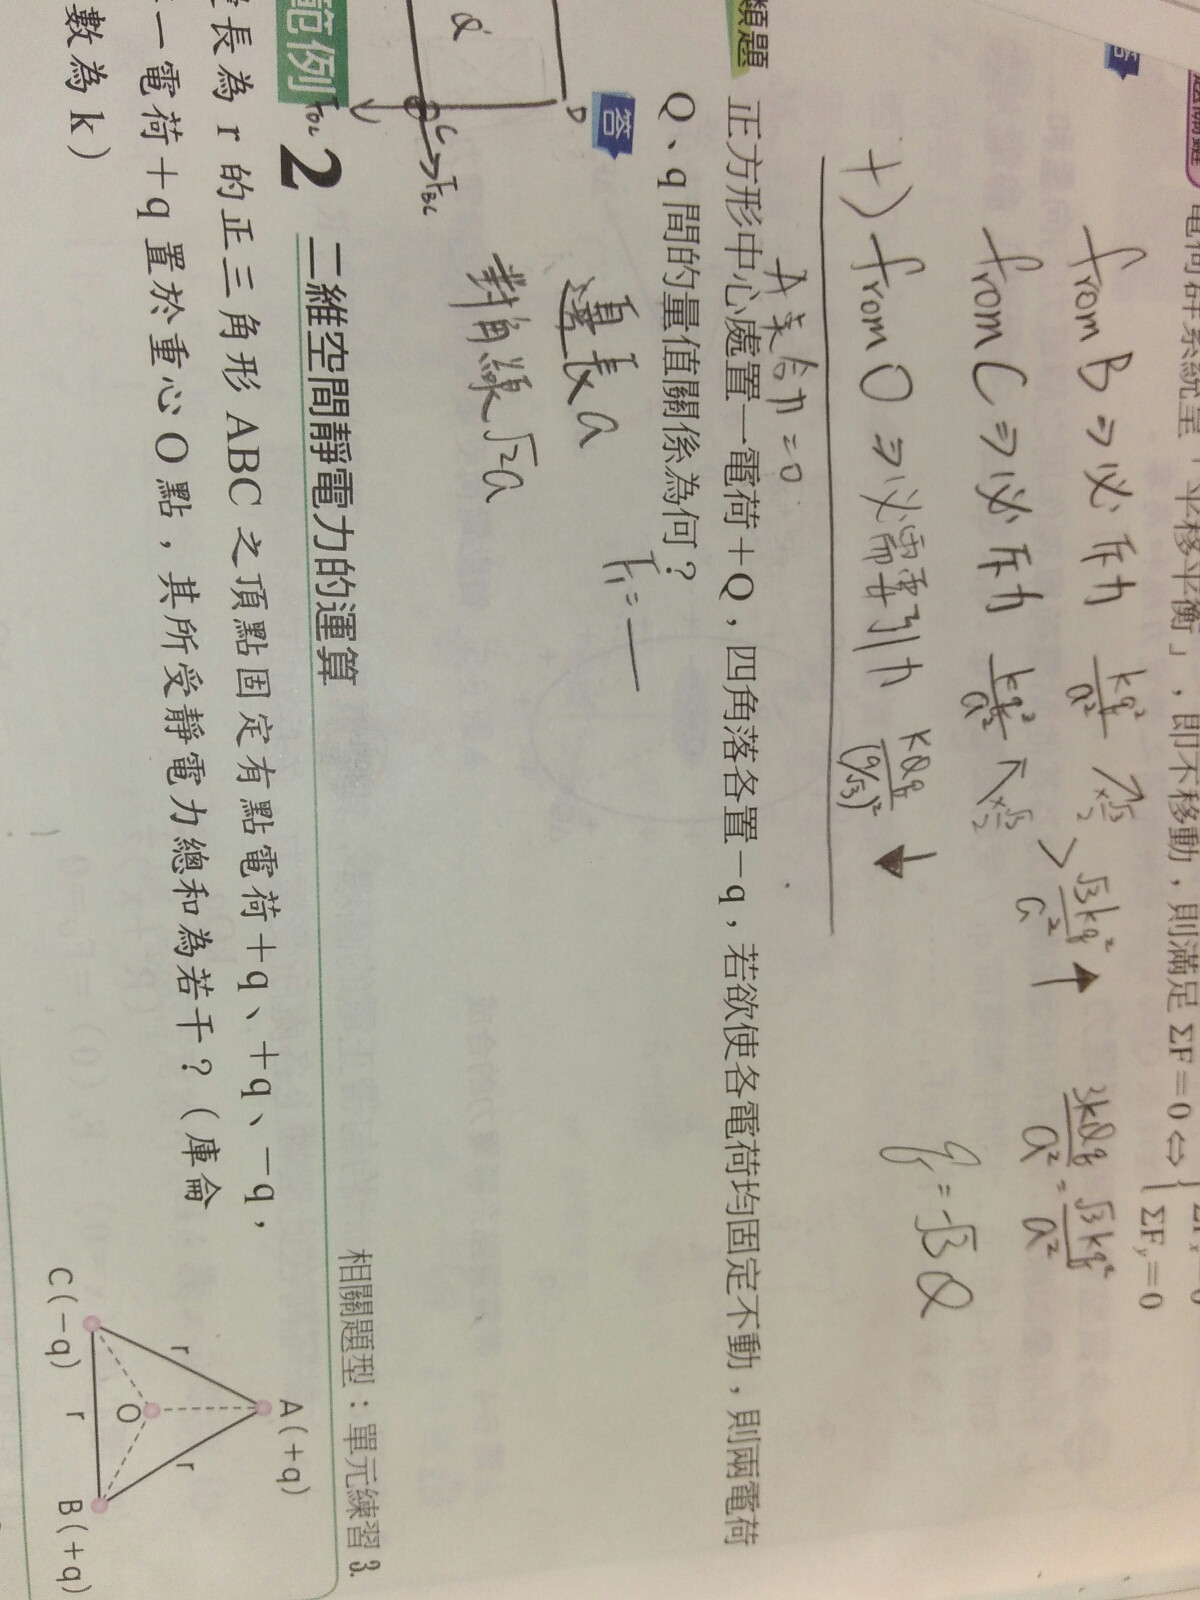 電荷群系統呈「平移平衡」，即不移動，則滿足 ΣF＝0⇔
ΣFy＝0
答
from B ⇒ 必斥力 kq²/a² ↗×√3/2
from C ⇒ 必斥力 kq²/a² ↖×√3/2
> √3kq²/a² ↑
+) from O ⇒ 必需要引力 kQq/(a/√3)² ↓
3kQq/a² = √3kq²/a²
q = √3Q
A 美合力 = 0
類題 正方形中心處置一電荷＋Q，四角落各置－q，若欲使各電荷均固定不動，則兩電荷
Q、q 間的量值關係為何？
答
F₁ =
邊長 a
對角線 √2a
Q
D
C
FBC
範例 2 二維空間靜電力的運算
相關題型：單元練習 3.
長為 r 的正三角形 ABC 之頂點固定有點電荷＋q、＋q、－q，
一電荷＋q 置於重心 O 點，其所受靜電力總和為若干？（庫侖
數為 k）
A(＋q)
r
r
O
C(－q)
r
B(＋q)